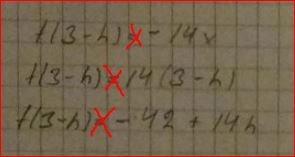 f(3-h) = -14x
f(3-h) = 14(3-h)
f(3-h) = -42 + 14h